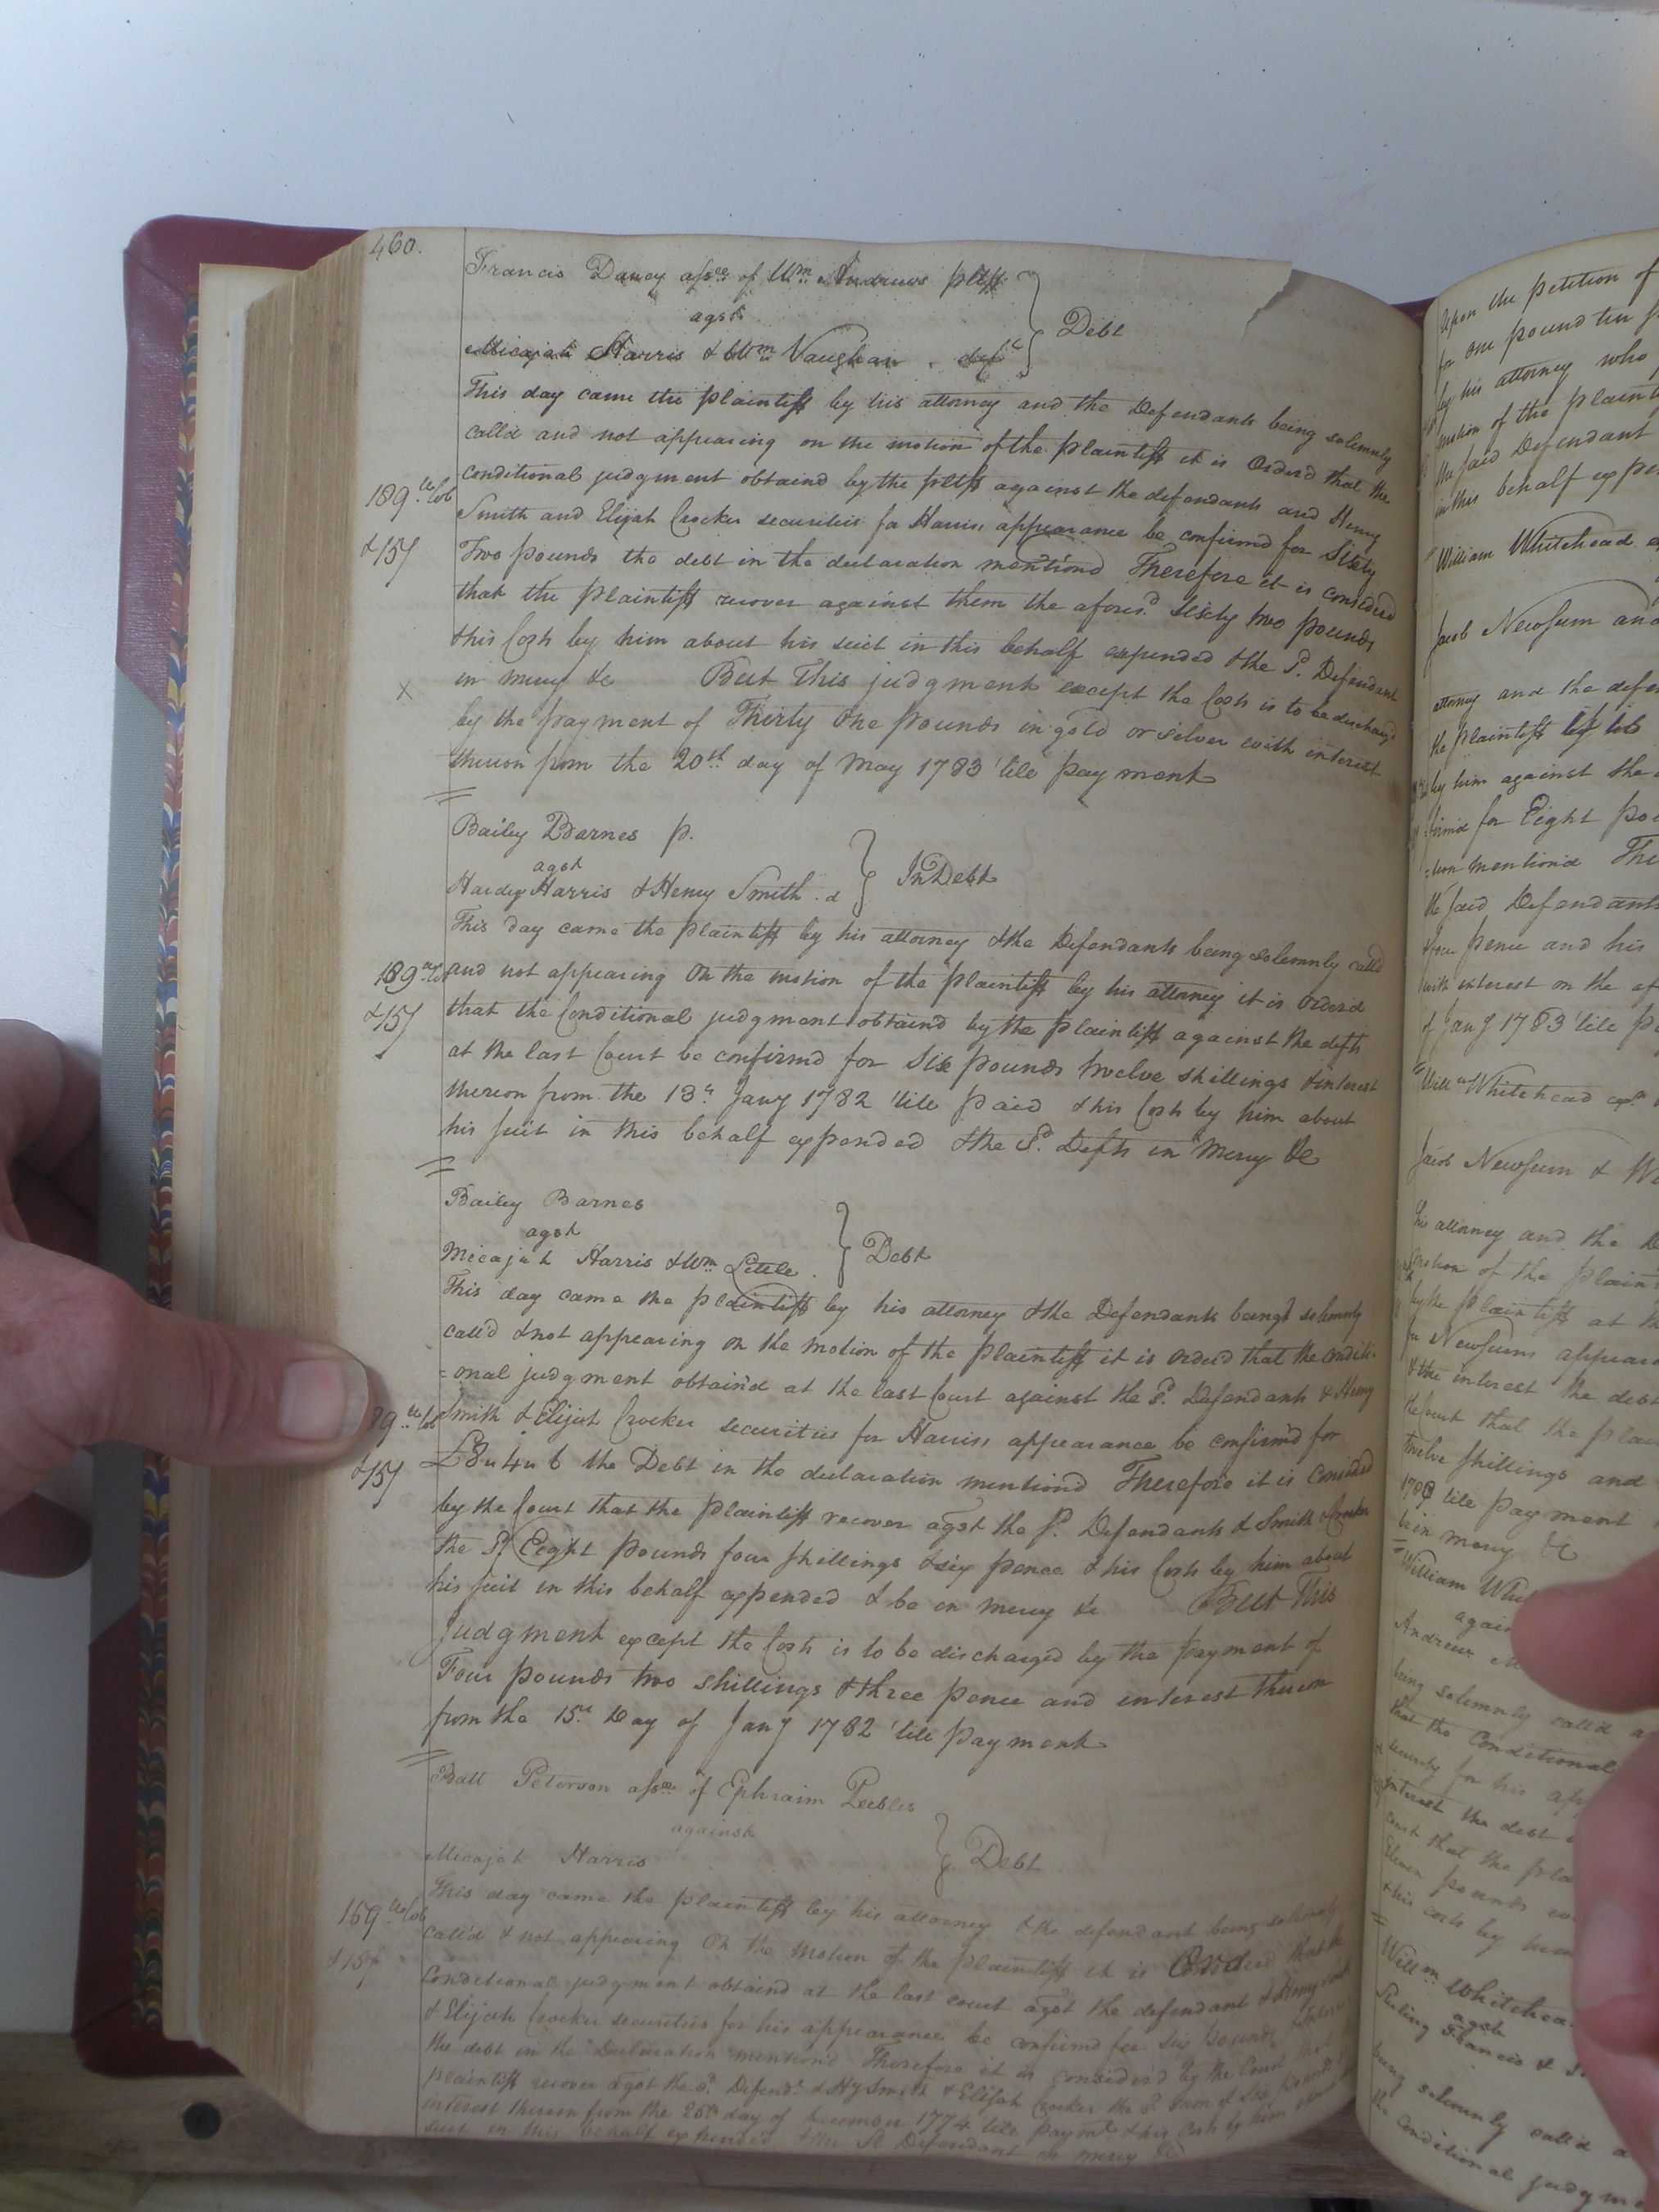 460.
Francis Dancy assee of Wm Andrews pltff
agst
Debt
Micajah Harris & Wm Vaughan . deft
This day came the plaintiff by his attorney and the Defendants being solemnly
calld and not appearing on the motion of the plaintiff it is Orderd that the
conditional judgment obtaind by the pltff against the defendants and Henry
189 lb Tob
Smith and Elijah Crocker securities for Harris's appearance be confirmd for Sixty
&15/
Two pounds the debt in the declaration mention'd Therefore it is considerd
that the plaintiff recover against them the aforesd. Sixty two pounds
& his Costs by him about his suit in this behalf expended & the Sd. Defendants
in mercy &c But This judgment except the Costs is to be discharg'd
X
by the payment of Thirty One pounds in gold or silver with interest
thereon from the 20th day of May 1783 'till payment
Bailey Barnes p.
agst
In Debt
Hardy Harris & Henry Smith . d
This day came the plaintiff by his attorney & the Defendants being solemnly calld
189 lb Tob
and not appearing On the motion of the plaintiff by his attorney it is orderd
&15/
that the Conditional judgment obtaind by the plaintiff against the defts
at the last Court be confirmd for Six pounds twelve shillings & interest
thereon from the 13th Jany 1782 'till paid & his Costs by him about
his suit in this behalf expended & the Sd. Defts in Mercy &c
Bailey Barnes
agst
Debt
Micajah Harris & Wm Little .
This day came the plaintiff by his attorney & the Defendants being solemnly
call'd & not appearing On the motion of the plaintiff it is orderd that the conditi-
=onal judgment obtain'd at the last Court against the Sd. Defendants & Henry
89 lb Tob
Smith & Elijah Crocker securities for Harris's appearance be confirm'd for
&15/
£8 4 6 the Debt in the declaration mentiond Therefore it is considerd
by the Court that the plaintiff recover agst the Sd. Defendants & Smith & Crocker
the Sd. Eight pounds four shillings & six pence & his Costs by him about
his suit in this behalf expended & be in mercy &c But This
Judgment except the Costs is to be discharged by the payment of
Four pounds two shillings & three pence and interest thereon
from the 15th Day of Jany 1782 'till payment
Batt Peterson assee of Ephraim Peebles
against
Debt
Micajah Harris
This day came the plaintiff by his attorney & the defendant being solemnly
169 lb Tob
call'd & not appearing On the Motion of the plaintiff it is Orderd that the
&15/
Conditional judgment obtaind at the last court agst the defendant & Henry Smith
& Elijah Crocker securities for his appearance be confirmd for Six pounds & interest
the debt in the Declaration mention'd Therefore it is considerd by the Court that the
plaintiff recover agst the sd. Defendt & Hy Smith & Elijah Crocker the Sd. Sum of Six pounds
interest thereon from the 25th day of December 1774 till paymt & his Costs by him about his
suit in this behalf expended & the Sd Defendant in mercy &c
Upon the petition of
for one pound ten
by his attorney who
motion of the plaint
the said Defendant
in this behalf expen
William Whitehead
Jacob Newsum and
attorney and the defen
the plaintiff by his
by him against the
firmd for Eight pou
=tion mentiond The
the said Defendants
four pence and his
with interest on the af
of Jany 1783 'till pa
Will Whitehead
Jacob Newsum & W
his attorney and the D
motion of the plain
by the plaintiff at th
for Newsums appeara
& the interest the debt
the Court that the plai
twelve shillings and
till payment
be in mercy &c
William Whi
again
Andrew M
being solemnly call'd a
that the Conditional
security for his app
interest the debt
court that the pla
Eleven pounds
& his costs by him
Willm Whitehea
agst
Francis &
being solemnly call'd a
the Conditional judgme